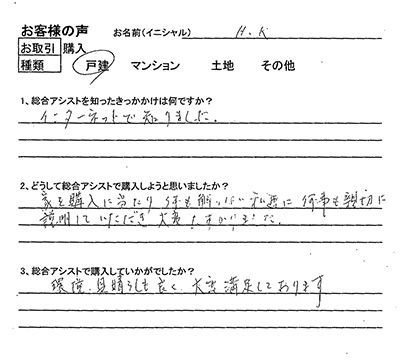 お客様の声 お名前(イニシャル) H.K
お取引 購入
種類 戸建 マンション 土地 その他
1、総合アシストを知ったきっかけは何ですか?
インターネットで知りました。
2、どうして総合アシストで購入しようと思いましたか?
家を購入に当たり 何も解らない私達に 何事も親切に
説明していただき 大変助かりました。
3、総合アシストで購入していかがでしたか?
環境、見晴らしも良く、大変満足しております